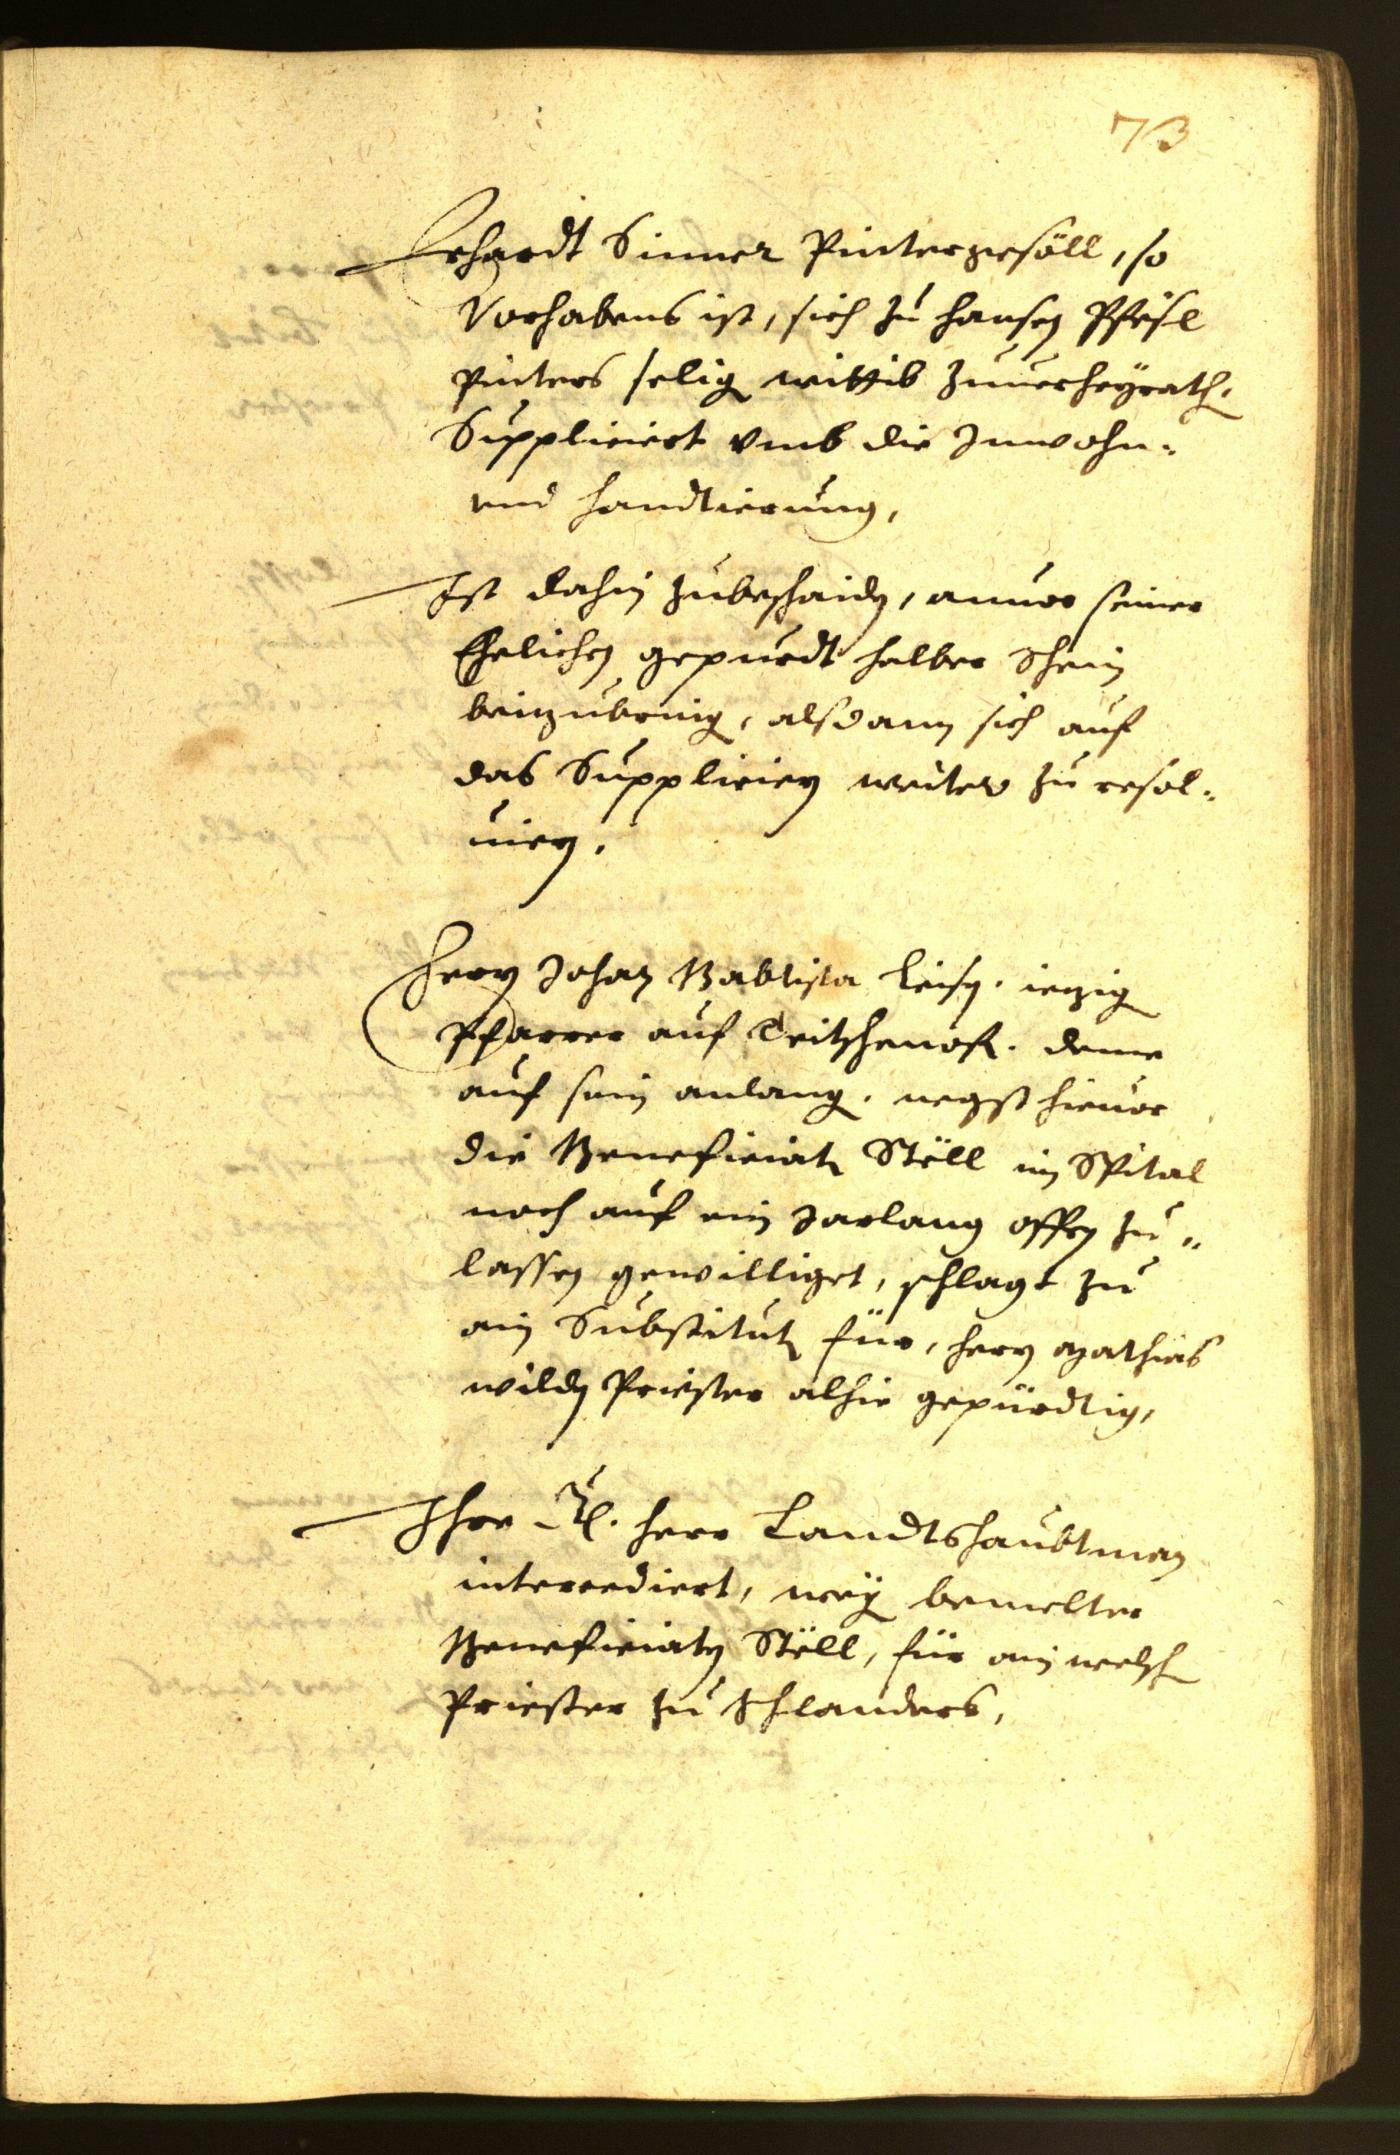 73
Erhardt Sinner Pintergesöll, so
Vorhabens ist, sich zu hansen Pfösl
Pinters selig wittib zuuerheyrath.
Suppliciert vmb die Inwohn-
und handtierung,
Ist dahin zubeschaiden, anuor seiner
Ehelichen gepurdt halber Schein
beizubring, alsdann sich auf
das Supplicien weiter zu resol-
uiern.
Herrn Johan Babtista iezig
Pfarrer auf Teitschenofe. deme
auf sein anlang. negst hieuor
die Beneficiat Stöll im Spital
noch auf ein Jarlang offen zu
lassen gewilliget, schlagt zu
ein Substitut für, herrn Mathias
wilden Priester alhie gepürdtig,
Ihre herr Landtshaubtman
intercediert, weg bemelter
Beneficiaten Stöll, für ain welsch
Priester zu Schlanders,